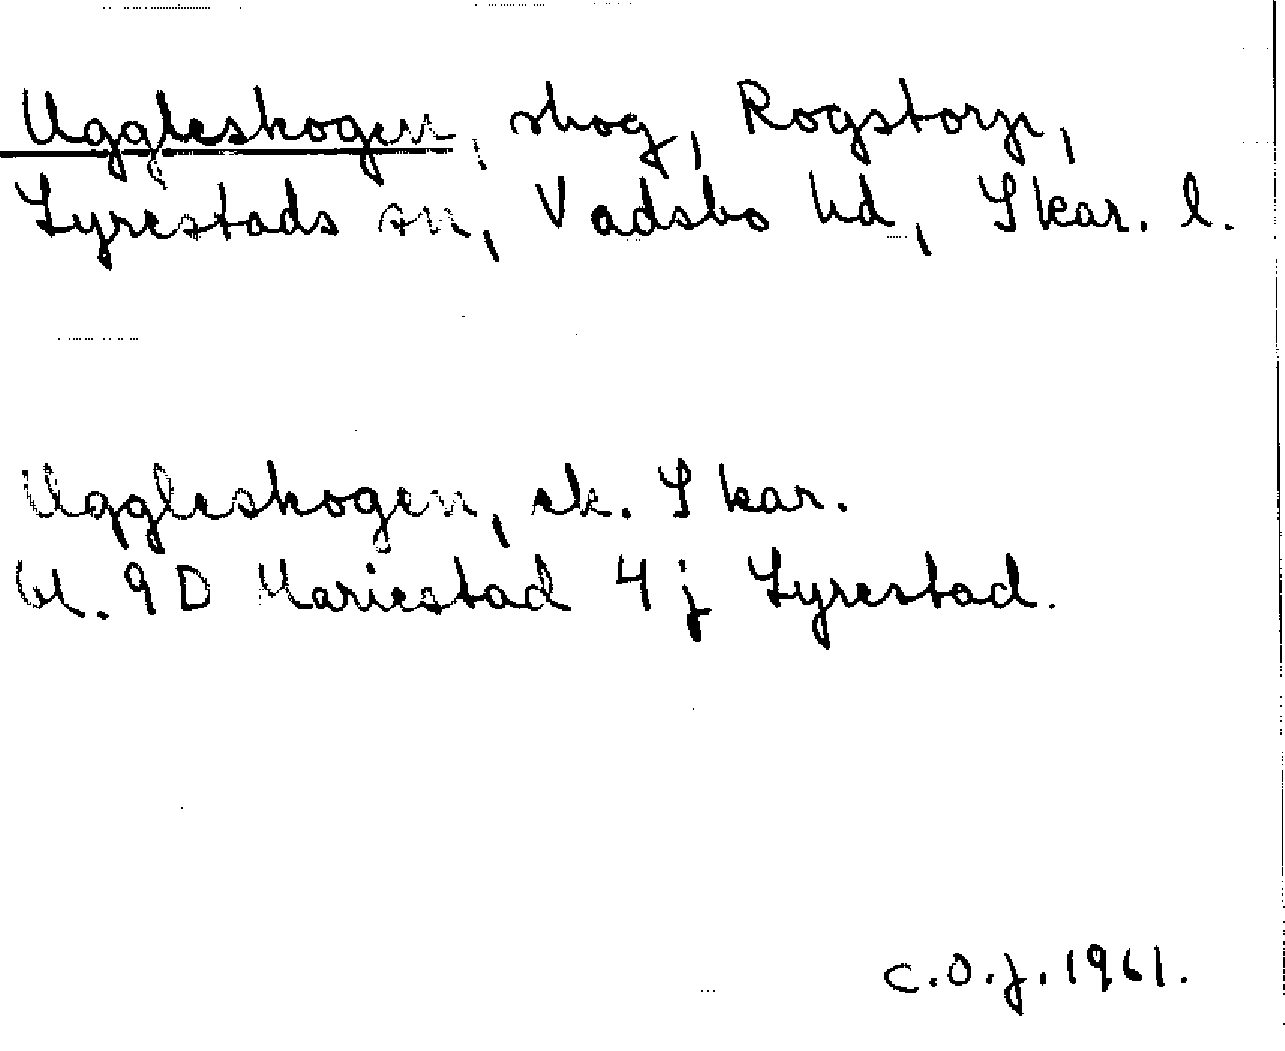 Uggleskogen, skog, Rogstorp,
Lyrestads sn, Vadsbo hd, Skar. l.
Uggleskogen, ek. Skar.
bl. 9D Mariestad 4j Lyrestad.
C.O.J. 1961.